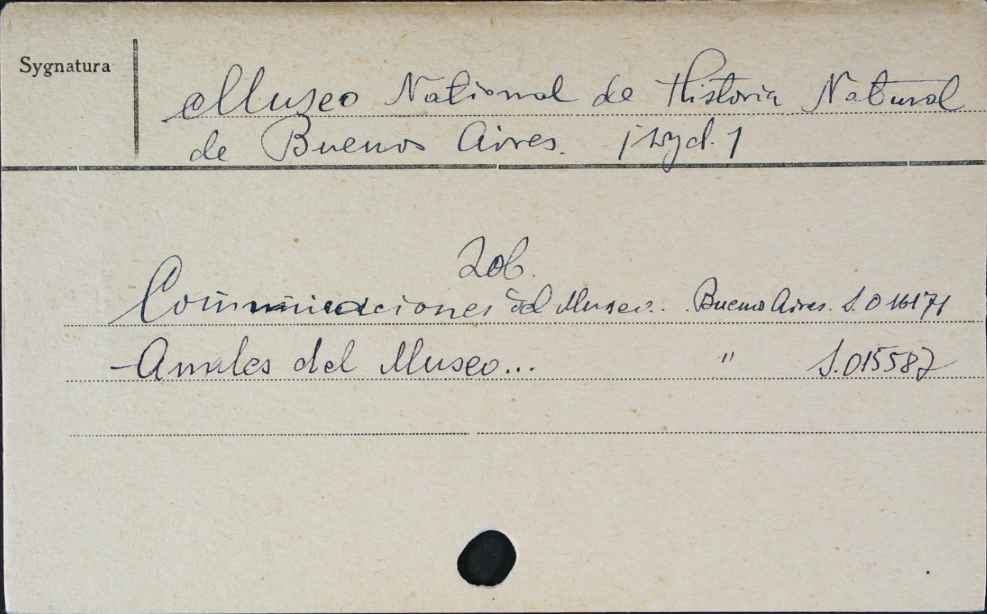 Sygnatura
Museo National de Historia Natural
de Buenos Aires. /wyd./
Zob.
Comunicaciones del Museo.. Buenos Aires. S.016171
- Anales del Museo... " S.015587